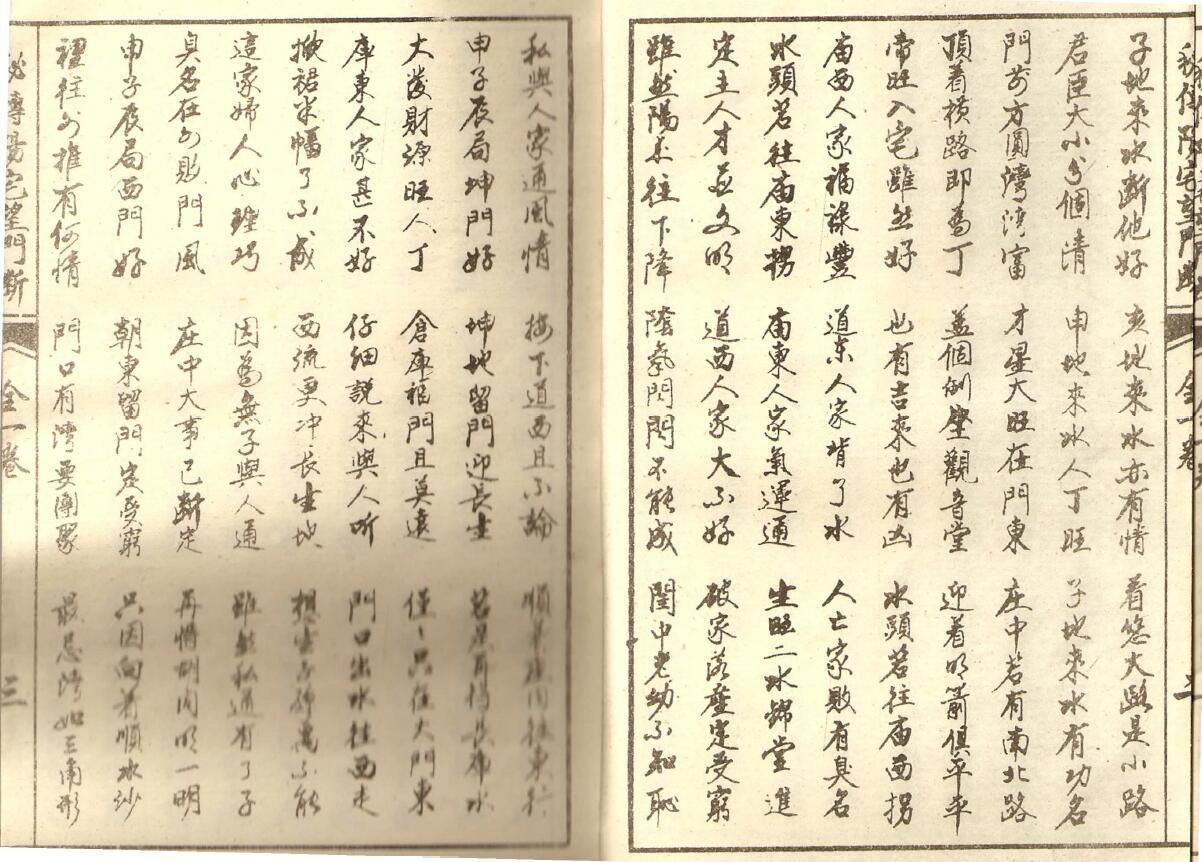 子地來水斷他好 亥地來水亦有情 看您大路是小路
君臣大小分個清 申地來水人丁旺 子地來水有功名
門前方圓灣灣富 才星大旺在門東 庄中若有南北路
頂着横路即為丁 蓋個倒座觀音堂 迎着明箭俱平平
帝旺入宅雖然好 也有吉來也有凶 水頭若往庙西拐
庙西人家福祿豐 道东人家背了水 人亡家敗有臭名
水頭若往庙東拐 庙東人家氣運通 生旺二水錦堂進
定主人才並文明 道西人家大不好 破家落 定受窮
雖然陽 往下降 陰氣閃閃不能成 閨中老幼不知恥
私與人家通風情 按下道西且不論 順 往東行
申子辰局坤門好 坤地留門迎長生 若 長 水
大發財源旺人丁 倉庫福門且莫遠 僅僅只在大門東
庫東人家甚不好 仔細說來與人听 門口出水往西走
掀裙米幅了不成 西流更冲长生坎 想生子 不能
這家婦人心 巧 因為無子與人通 雖然私通有了子
臭名在外敗門風 庄中大事已断定 再將 内明一明
申子辰局西門好 朝東留門定受窮 只因向着順水沙
裡往外推有何情 門口有灣要團聚 最忌灣如三角形
秘傳陽宅望門斷
全一卷
三
秘傳陽宅望門斷
全一卷